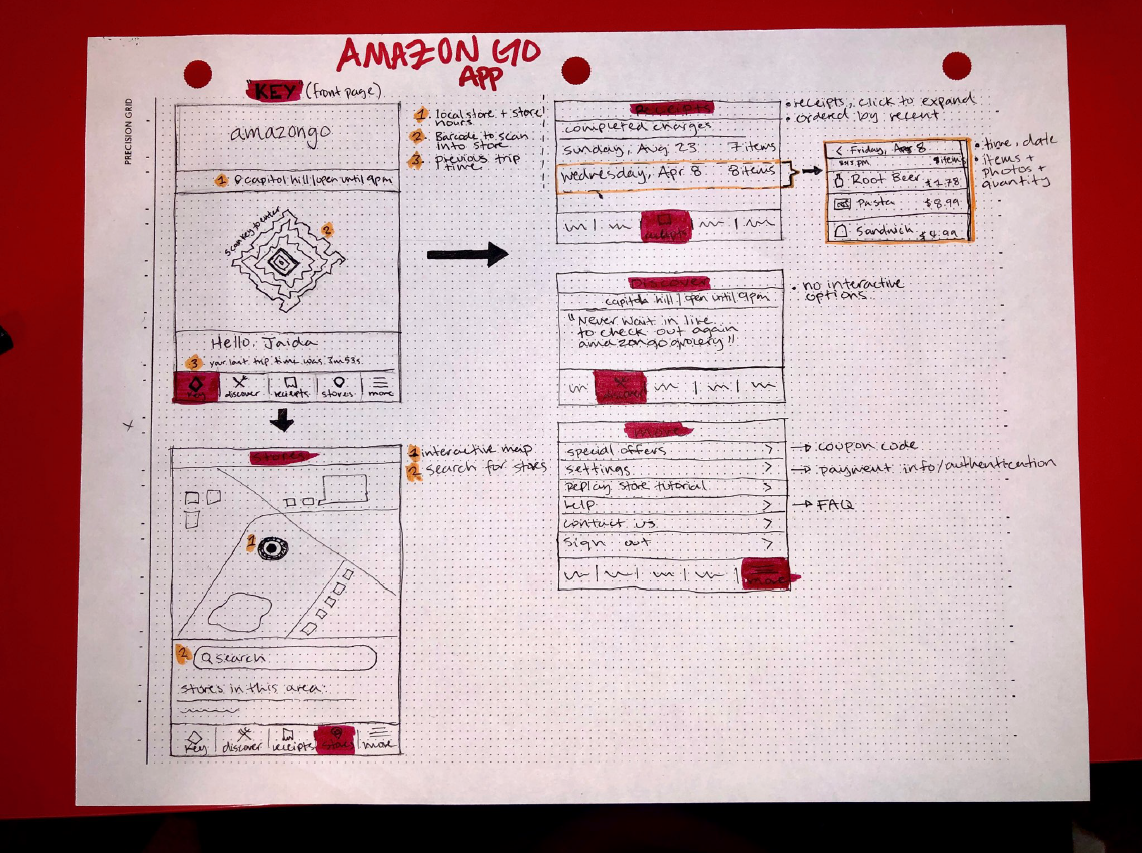 AMAZON GO
APP
PRECISION GRID
KEY (front page)
amazongo
1 capitol hill/open until 9pm
scan key to enter
2
Hello, Jaida
3 your last trip time was: 3m 53s
key discover receipts stores more
1. local store + store
hours
2. Barcode to scan
into store
3. previous trip
time
Stores
1
2 search
stores in this area:
key discover receipts stores more
1 interactive map
2 search for stores
Receipts
completed charges
Sunday, Aug 23 7 items
Wednesday, Apr 8 8 items
receipts
• receipts, click to expand
• ordered by recent
< Friday, Apr 8
8 items
Root Beer $2.78
Pasta $8.99
Sandwich $4.99
• time, date
• items +
photos +
quantity
Discover
capitol hill/open until 9pm
"Never wait in line
to check out again
amazongo grocery"
discover
• no interactive
options
More
special offers >
settings >
Replay store tutorial >
help >
contact us >
sign out >
more
→ coupon code
→ payment info/authentication
→ FAQ